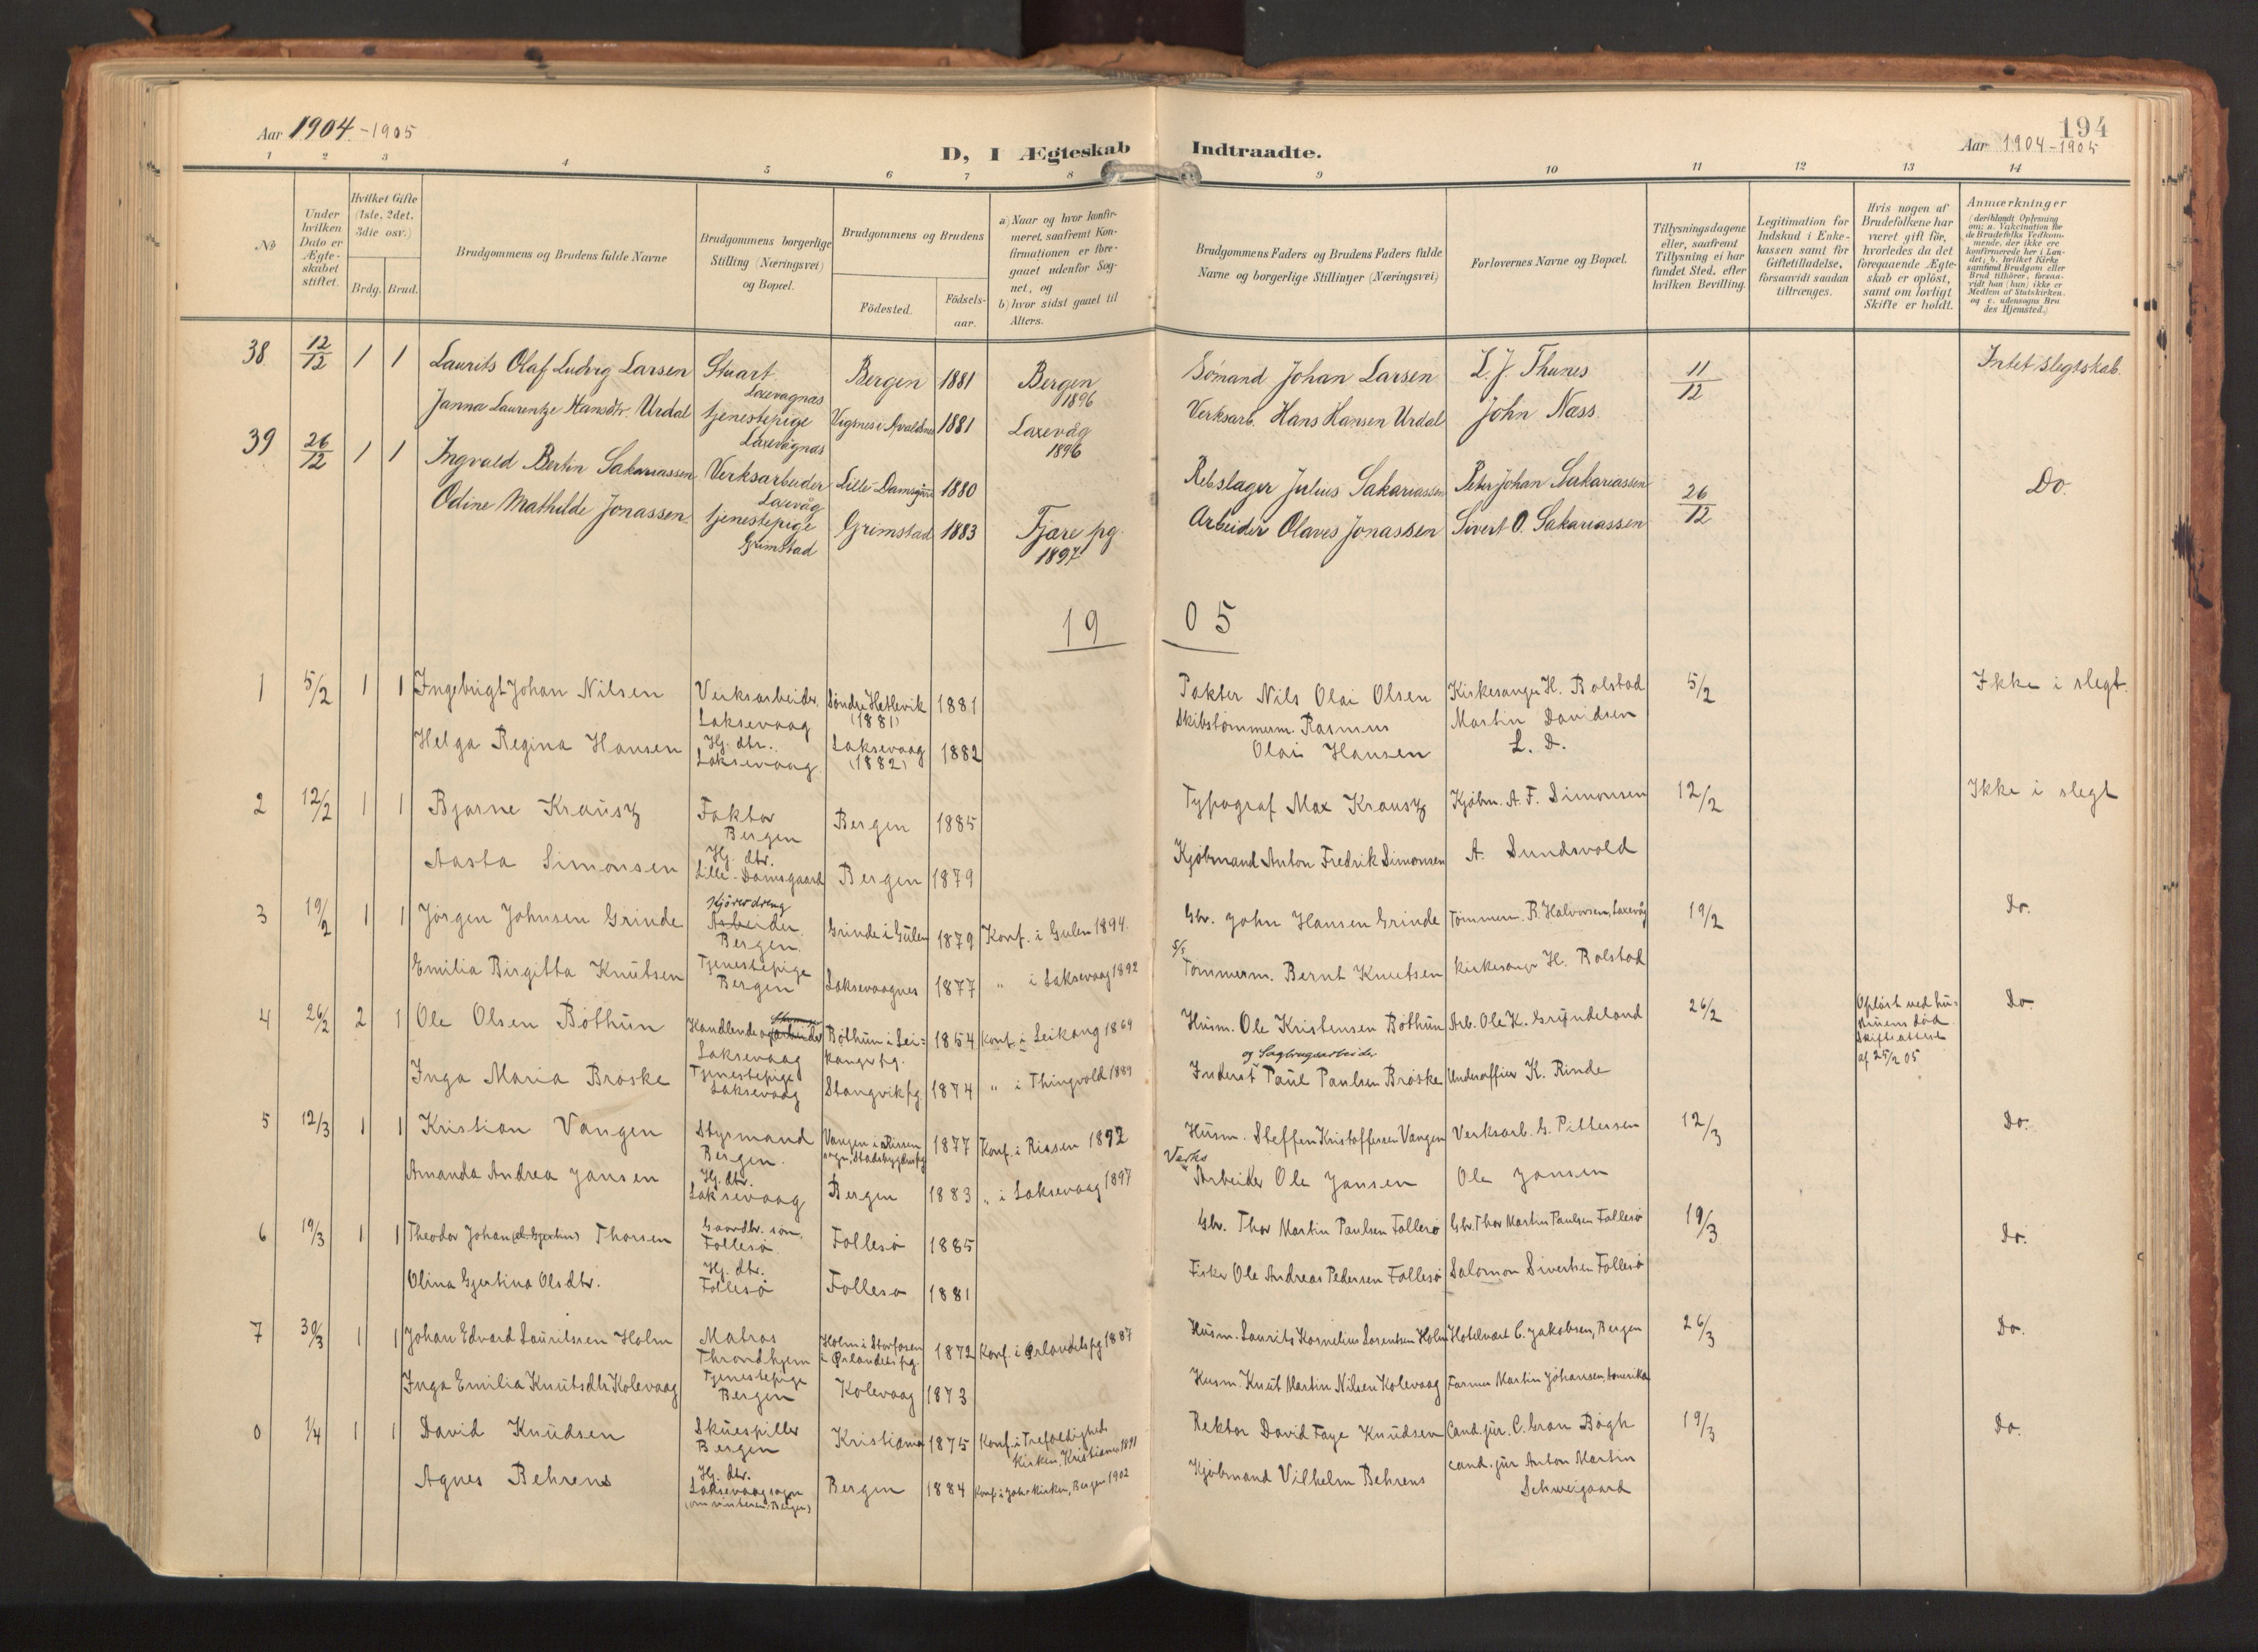 Aar 1904.-1905
D, I Ægteskab Indtraadte.
194
Aar 1904-1905
1 2 3 4 5 6 7 8 9 10 11 12 13 14
No
Under hvilken Dato er Ægteskabet stiftet.
Hvilket Gifte (1ste, 2det, 3die osv.)
Brdg. Brud.
Brudgommens og Brudens fulde Navne
Brudgommens borgerlige Stilling (Næringsvei) og Bopæl.
Brudgommens og Brudens
Födested.
Födselsaar.
a) Naar og hvor konfirmeret, saafremt Konfirmationen er foregaaet udenfor Sognet, og
b) hvor sidst gaaet til Alters.
Brudgommens Faders og Brudens Faders fulde Navne og borgerlige Stillinger (Næringsvei)
Forlovernes Navne og Bopæl.
Tillysningsdagene eller, saafremt Tillysning ei har fundet Sted, efter hvilken Bevilling.
Legitimation for Indskud i Enkekassen samt for Giftetilladelse, forsaavidt saadan tiltrænges.
Hvis nogen af Brudefolkene har været gift för, hvorledes da det foregaaende Ægteskab er oplöst, samt om lovligt Skifte er holdt.
Anmærkninger
(deriblandt Oplysning om: a. Vakcination for de Brudefolks Vedkommende, der ikke ere konfirmerede her i Landet; b. hvilket Kirkesamfund Brudgom eller Brud tilhører, forsaavidt han (hun) ikke er Medlem af Statskirken, og c. udensogns Brudes Hjemsted.)
38 12/12 1 1 Laurits Olaf Ludvig Larsen Stuart Laxevagnæs Bergen 1881 Bergen 1896 Sömand Johan Larsen L. J. Thunes 11/12 Intet slegtskab.
Janna Laurentze Hansdtr. Urdal tjenestepige Laxevågnæs Vigsnes i Avaldsnes 1881 Laxevåg 1896 Verksarb. Hans Hansen Urdal John Næss.
39 26/12 1 1 Ingvald Bertin Sakariassen Verksarbeider Laxevåg Lille-Damsgård 1880 Rebslager Julius Sakariassen Peter Johan Sakariassen 26/12 Do.
Odine Mathilde Jonassen. tjenestepige Grimstad Grimstad 1883 Fjære pg. 1897 Arbeider Olaves Jonassen Sivert O. Sakariassen
19 05
1 5/2 1 1 Ingebrigt Johan Nilsen Verksarbeider. Laksevaag Söndre Hetlevik (1881) 1881 Pakter Nils Olai Olsen Kirkesanger H. Rolstad 5/2 Ikke i slegt.
Helga Regina Hansen Hj. dtr. Laksevaag Laksevaag (1882) 1882 Skibstömmerm. Rasmus Olai Hansen Martin Davidsen L. D.
2 12/2 1 1 Bjarne Krausz Faktor Bergen Bergen 1885 Typograf Max Krausz Kjöbm. A. F. Simonsen 12/2 Ikke i slegt
Aasta Simonsen Hj. dtr. Lille-Damsgaard Bergen 1879 Kjöbmand Anton Fredrik Simonsen A. Sundsvold
3 19/2 1 1 Jörgen Johnsen Grinde Kjöredreng Arbeider. Bergen. Grinde i Gulen 1879 Konf. i Gulen 1894. Gbr. John Hansen Grinde Tömmerm. B. Halvorsen, Laxevåg 19/2 Do.
Emilia Birgitta Knutsen Tjenestepige Bergen Laksevaagnes 1877 " i Laksevaag 1892 Tömmerm. Bernt Knutsen Kirkesanger H. Rolstad
4 26/2 2 1 Ole Olsen Böthun Handlende og arbeider Laksevaag Böthun i Leikanger pg. 1854 Konf. i Leikang 1869 Husm. Ole Kristensen Böthun Arb. Ole K. Gryndeland 26/2 Oplöst ved hustruens död Skifteattest af 25/2 05 Do.
Inga Maria Bröske Tjenestepige Laksevaag Stangvik pg. 1874 " i Thingvold 1889 Inderst og Sagbrugsarbeider Paul Paulsen Bröske Underoffiser K. Rinde
5 12/3 1 1 Kristian Vangen Styrmand Bergen. Vangen i Rissen sogn, Stadsbygden pg 1877 Konf. i Rissen 1892 Husm. Steffen Kristoffersen Vangen Verksarb. G. Pettersen 12/3 Do.
Amanda Andrea Jansen Hj. dtr. Laksevaag Bergen 1883 " i Laksevaag 1897 Verks Arbeider Ole Jansen Ole Jansen
6 19/3 1 1 Theodor Johan Thorsen Gaardbr. sön, Follesö. Follesö 1885 Gbr. Thor Martin Paulsen Follesö Gbr. Thor Martin Paulsen Follesö 19/3 Do.
Olina Gjertina Olsdtr. Hj. dtr. Follesö Follesö 1881 Fisker Ole Andreas Pedersen Follesö Salomon Sivertsen Follesö
7 30/3 1 1 Johan Edvard Lauritssen Holm Matros Throndhjem Holm i Storfosen i Örlandets pg. 1872 Konf. i Örlandets pg 1887 Husm. Laurits Kornelius Lorentsen Holm Hotelvært C. Jakobsen, Bergen 26/3 Do.
Inga Emilia Knutsdtr Kolevaag Tjenestepige Bergen Kolevaag 1873 Husm. Knut Martin Nilsen Kolevaag Farmer Martin Johansen, Amerika
0 1/4 1 1 David Knudsen Skuespiller Bergen Kristiania 1875 Konf. i Trefoldigheds Kirken, Kristiania 1891 Rektor David Faye Knudsen Cand. jur. C. Gran Bögh 19/3 Do.
Agnes Behrens Hj. dtr. Laksevaag sogn (om vinteren i Bergen) Bergen 1884 Konf. i Joh. Kirken, Bergen 1902 Kjöbmand Vilhelm Behrens cand. jur Anton Martin Schweigaard